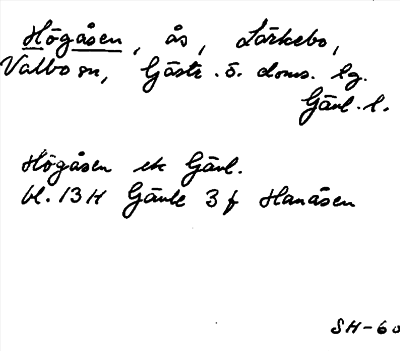 Högåsen, ås, Lörkebo,
Valbo sn, Gästr. ö. doms. lg.
Gävl. l.
Högåsen ek Gävl.
bl. 13H Gävle 3 f Hanåsen
SH-60